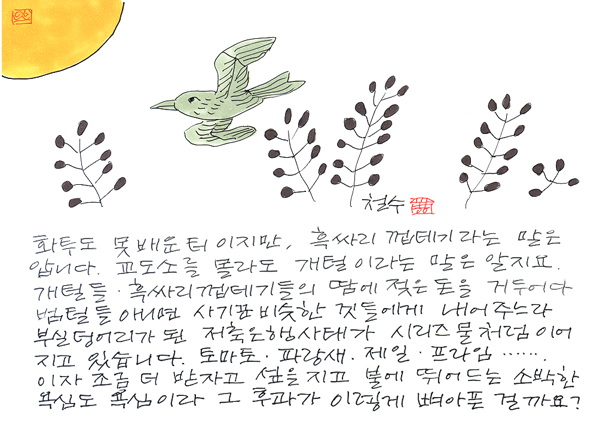 철수
화투도 못 배운 터이지만, 흑싸리 껍데기라는 말은
압니다. 교도소를 몰라도 개털이라는 말은 알지요.
개털들·흑싸리껍데기들의 땀에 젖은 돈을 거두어다
범털들 아니면 사기꾼 비슷한 것들에게 내어주느라
부실덩어리가 된 저축은행사태가 시리즈물처럼 이어
지고 있습니다. 토마토·파랑새·제일·프라임 ……
이자 조금 더 받자고 섶을 지고 불에 뛰어드는 소박한
욕심도 욕심이라 그 후과가 이렇게 뼈아픈 걸까요?